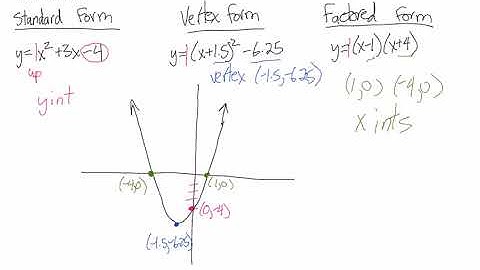 Standard Form
y=1x²+3x-4
up
y int
Vertex Form
y=1(x+1.5)²-6.25
vertex (-1.5,-6.25)
Factored Form
y=1(x-1)(x+4)
(1,0) (-4,0)
x ints
(-4,0)
(1,0)
(0,-4)
(-1.5,-6.25)